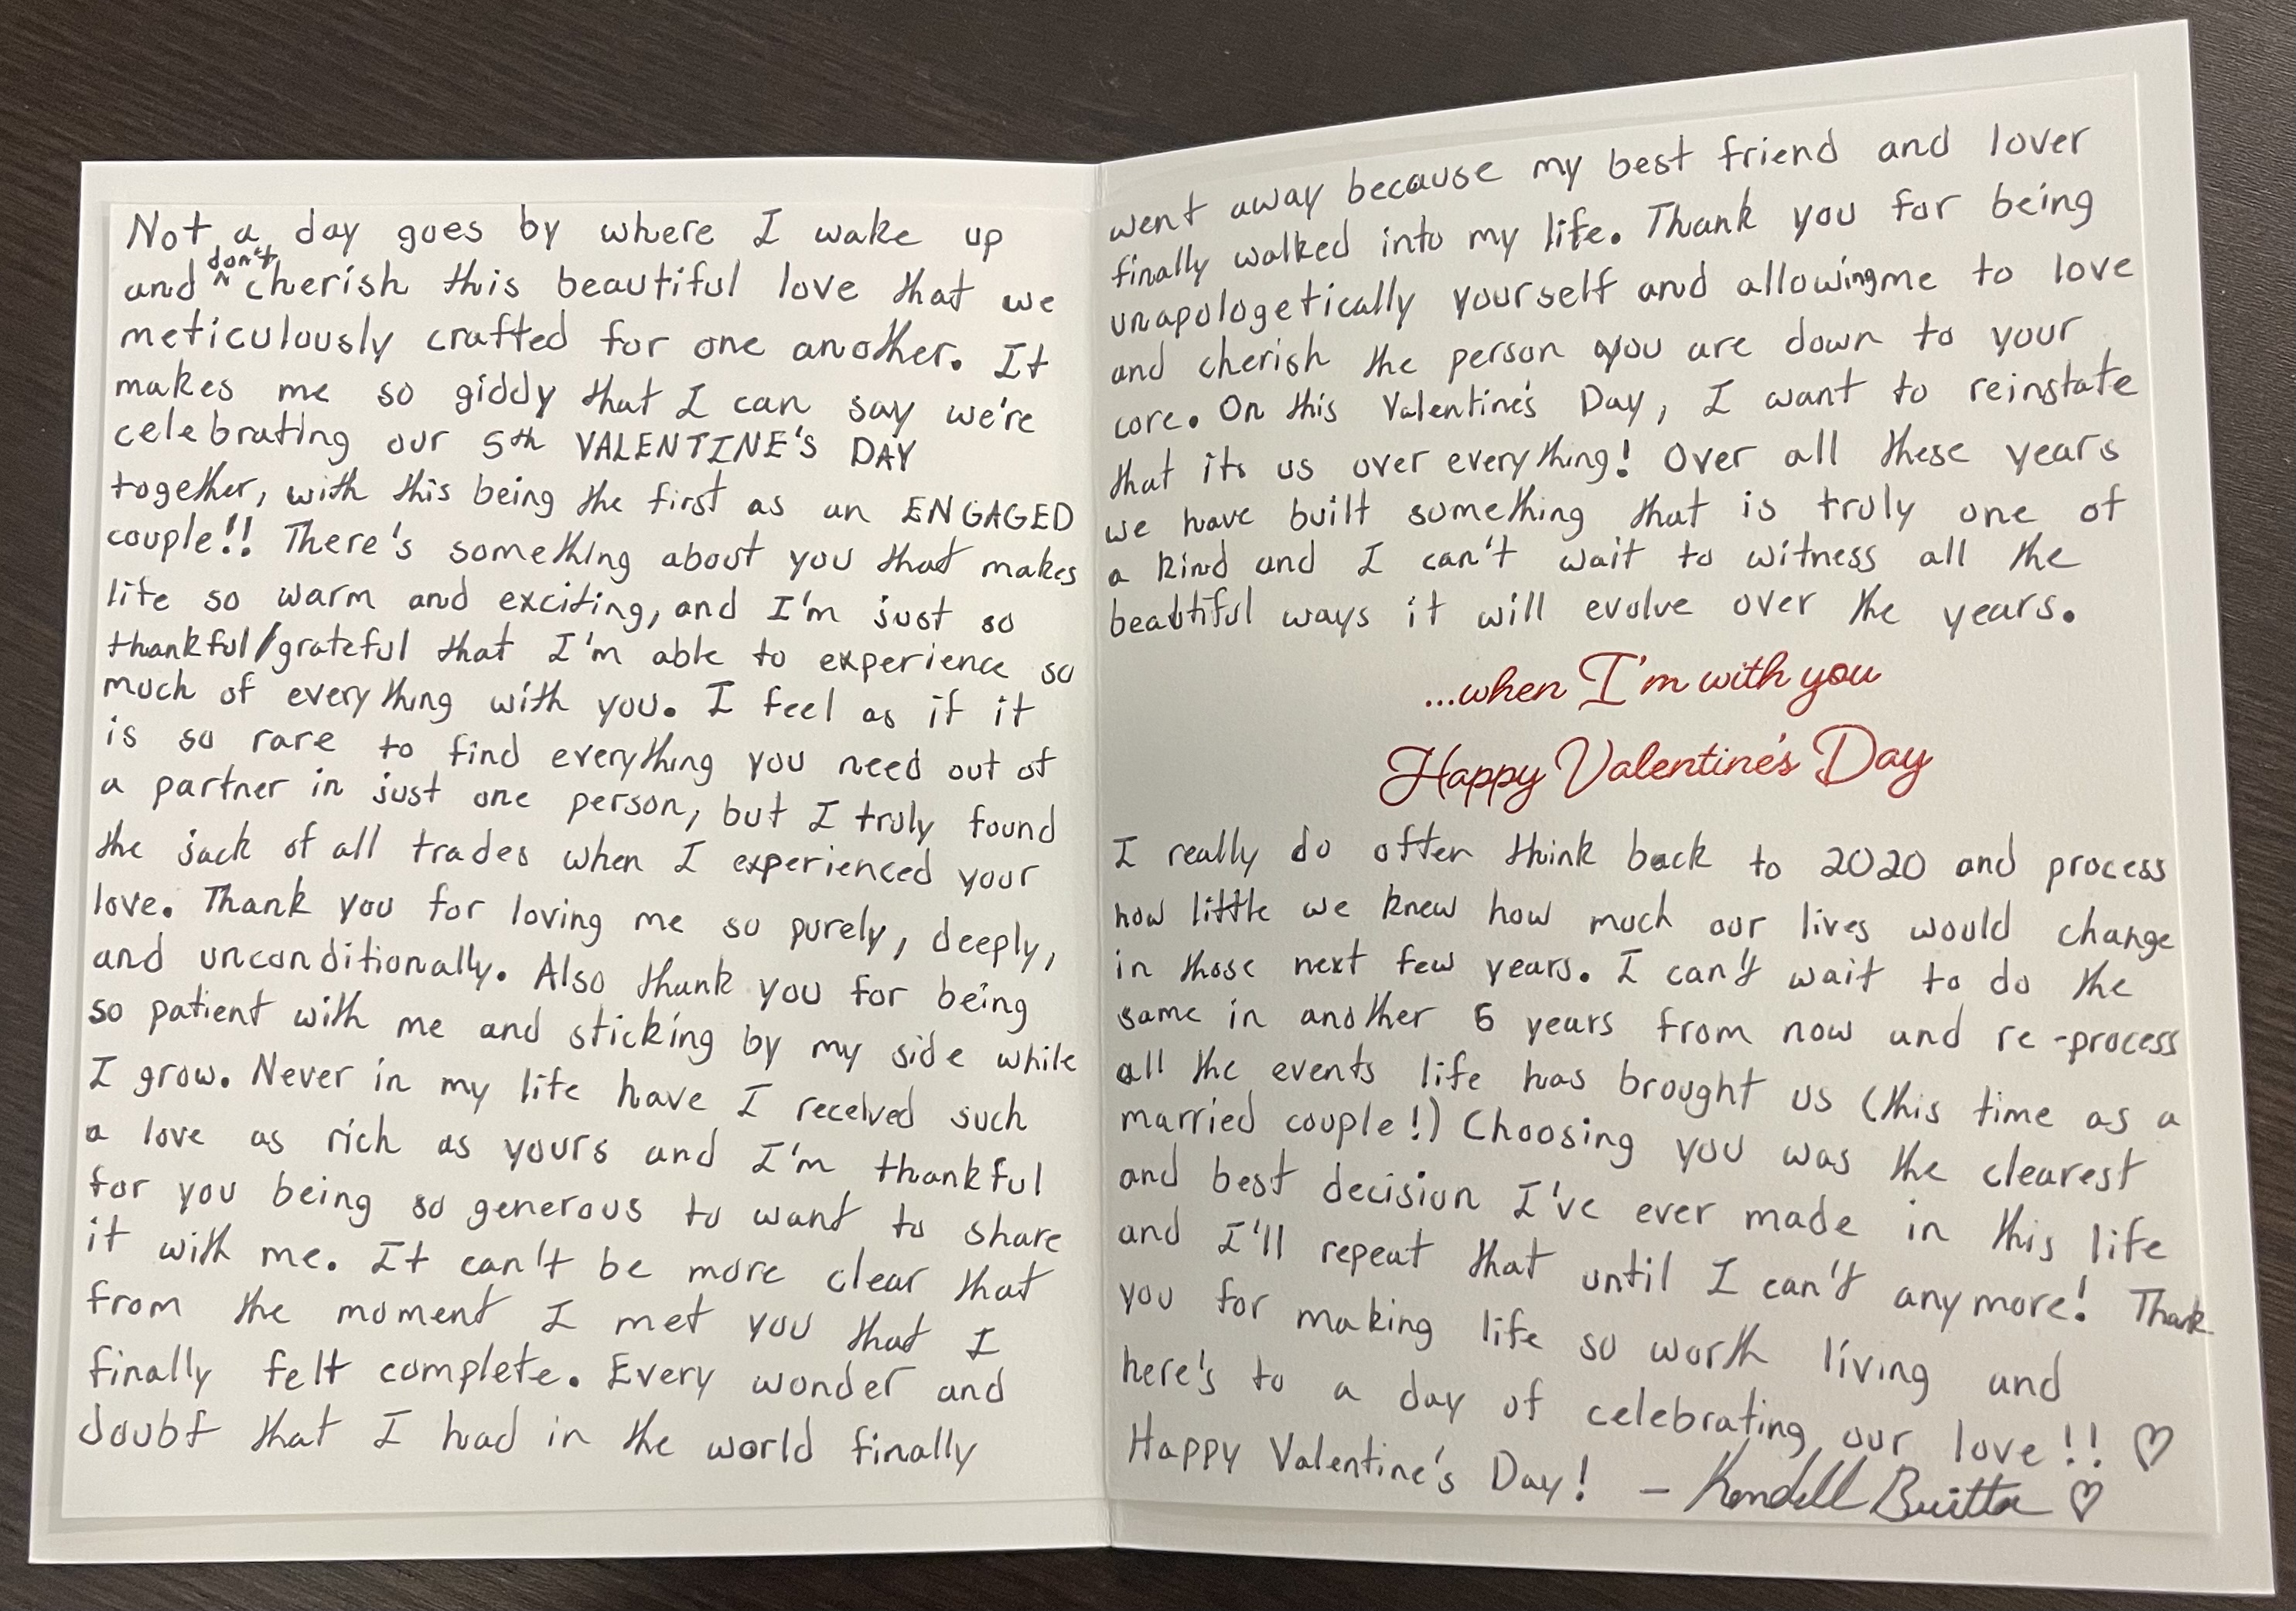 Not a day goes by where I wake up
and don't cherish this beautiful love that we
meticulously crafted for one another. It
makes me so giddy that I can say we're
celebrating our 5th VALENTINE'S DAY
together, with this being the first as an ENGAGED
couple!! There's something about you that makes
life so warm and exciting, and I'm just so
thankful/grateful that I'm able to experience so
much of everything with you. I feel as if it
is so rare to find everything you need out of
a partner in just one person, but I truly found
the jack of all trades when I experienced your
love. Thank you for loving me so purely, deeply,
and unconditionally. Also thank you for being
so patient with me and sticking by my side while
I grow. Never in my life have I received such
a love as rich as yours and I'm thankful
for you being so generous to want to share
it with me. It can't be more clear that
from the moment I met you that I
finally felt complete. Every wonder and
doubt that I had in the world finally
went away because my best friend and lover
finally walked into my life. Thank you for being
unapologetically yourself and allowing me to love
and cherish the person you are down to your
core. On this Valentine's Day, I want to reinstate
that its us over everything! Over all these years
we have built something that is truly one of
a kind and I can't wait to witness all the
beautiful ways it will evolve over the years.
...when I'm with you
Happy Valentine's Day
I really do often think back to 2020 and process
how little we knew how much our lives would change
in those next few years. I can't wait to do the
same in another 5 years from now and re-process
all the events life has brought us (this time as a
married couple!) Choosing you was the clearest
and best decision I've ever made in this life
and I'll repeat that until I can't anymore! Thank
you for making life so worth living and
here's to a day of celebrating our love!! ♡
Happy Valentine's Day! - Kendell Britta ♡